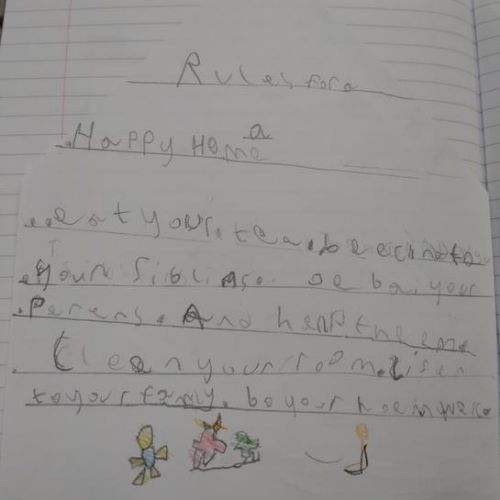 Rules for a
a
Happy Home
eat your tea. be
your siblins. your
Perens. And help theme
Clean your room. lisen
to your family. bo your